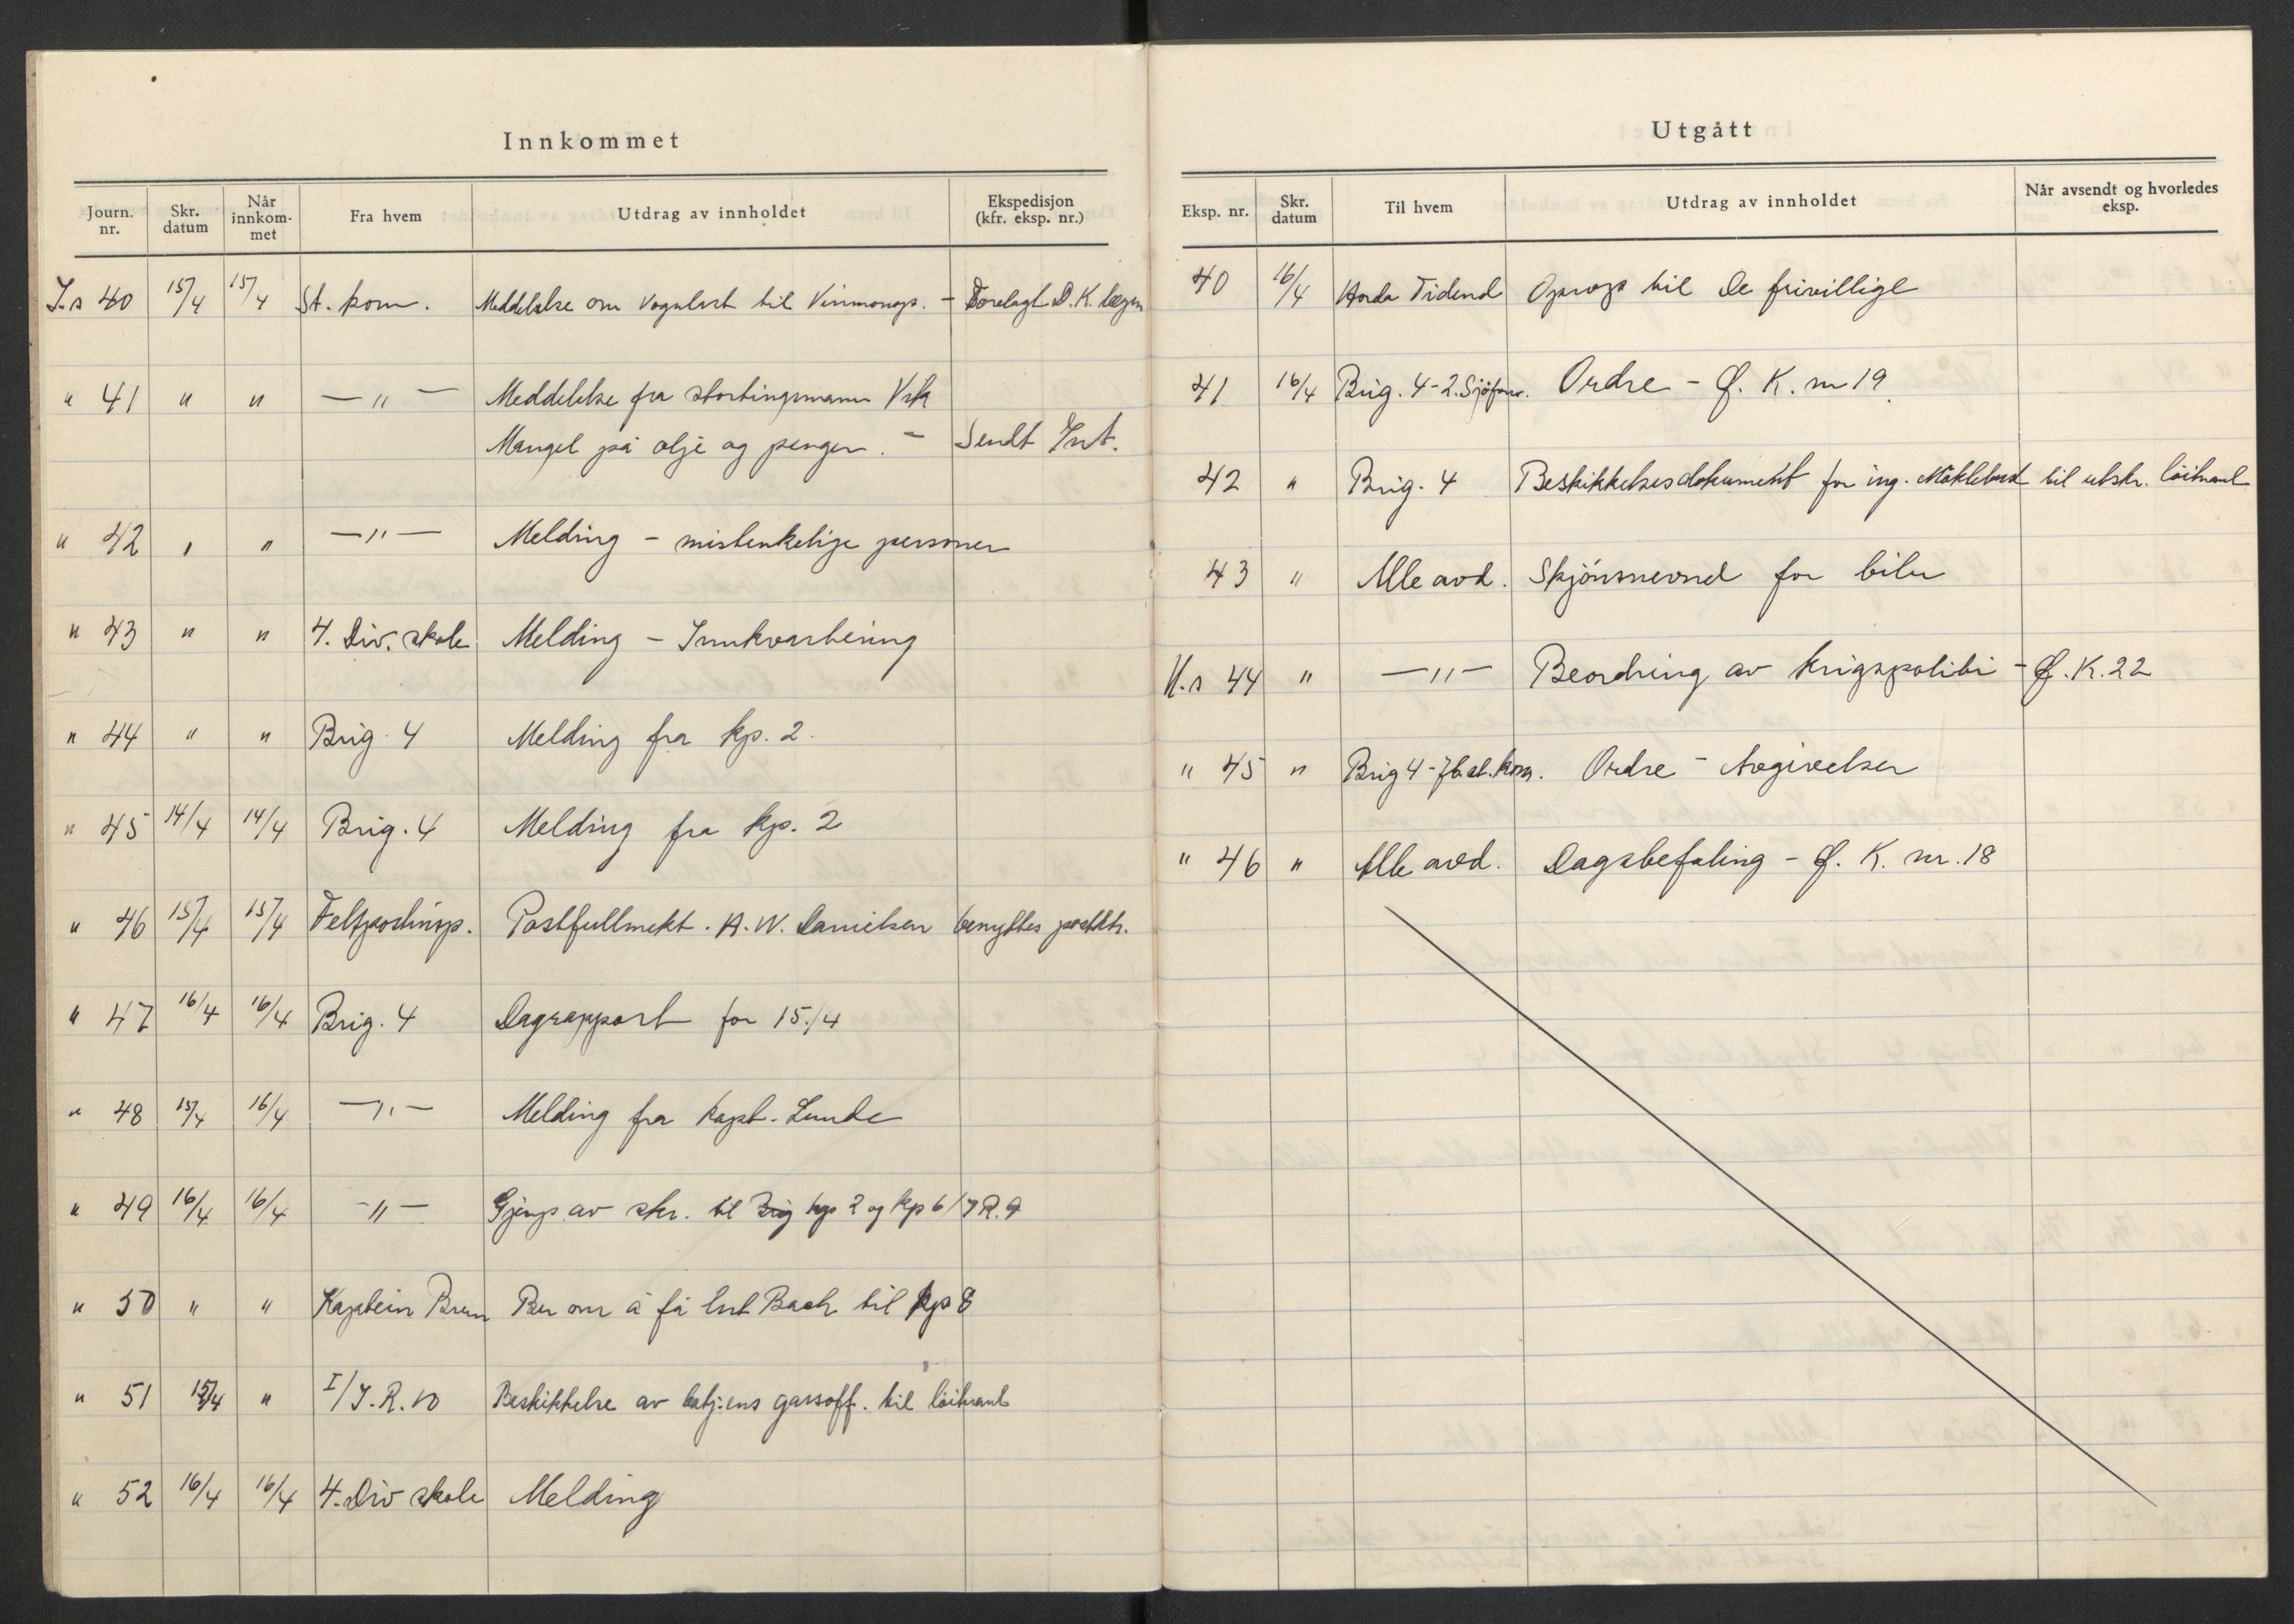 Innkommet
Journ. nr. Skr. datum Når innkommet Fra hvem Utdrag av innholdet Ekspedisjon (kfr. eksp. nr.)
J.s 40 15/4 15/4 St. kom. Meddelelse om vognlast til Vinmonop. - Forelagt D.K. legen
" 41 " " — " — Meddelelse fra stortingsmann
Mangel på olje og penger. - Sendt Int.
" 42 " " — " — Melding - mistenkelige personer
" 43 " " 4. Div. skole Melding - Innkvartering
" 44 " " Brig. 4 Melding fra kp. 2.
" 45 14/4 14/4 Brig. 4 Melding fra kp. 2
" 46 15/4 15/4 Feltpostinsp. Postfullmekt. A. W. Danielsen benyttes
" 47 16/4 16/4 Brig. 4 Dagrapport for 15./4
" 48 15/4 16/4 — " — Melding fra kapt. Lunde
" 49 16/4 16/4 — " — Gjenp. av skr. til kp 2 og kp 6/J.R. 9
" 50 " " Kaptein Brun Ber om å få lnt Bach til kp 8
" 51 15/4 " I/J.R. 10 Beskikkelse av batj:ens gassoff. til löitnant
" 52 16/4 16/4 4. Div skole Melding
Utgått
Eksp. nr. Skr. datum Til hvem Utdrag av innholdet Når avsendt og hvorledes eksp.
40 16/4 Horda Tidend Oprop til De frivillige
41 16/4 Brig. 4 - 2. Sjöfors. Ordre - Ø. K. nr 19
42 " Brig. 4 Beskikkelsesdokument for ing. Möklebust til utskr. löitnant
43 " Alle avd. Skjönsnevnd for biler
H.s 44 " — " — Beordring av krigspoliti - Ø. K. 22
" 45 " Brig 4 - Jb.st.kom. Ordre - Avgivelser
" 46 " Alle avd. Dagsbefaling - Ø. K. nr. 18